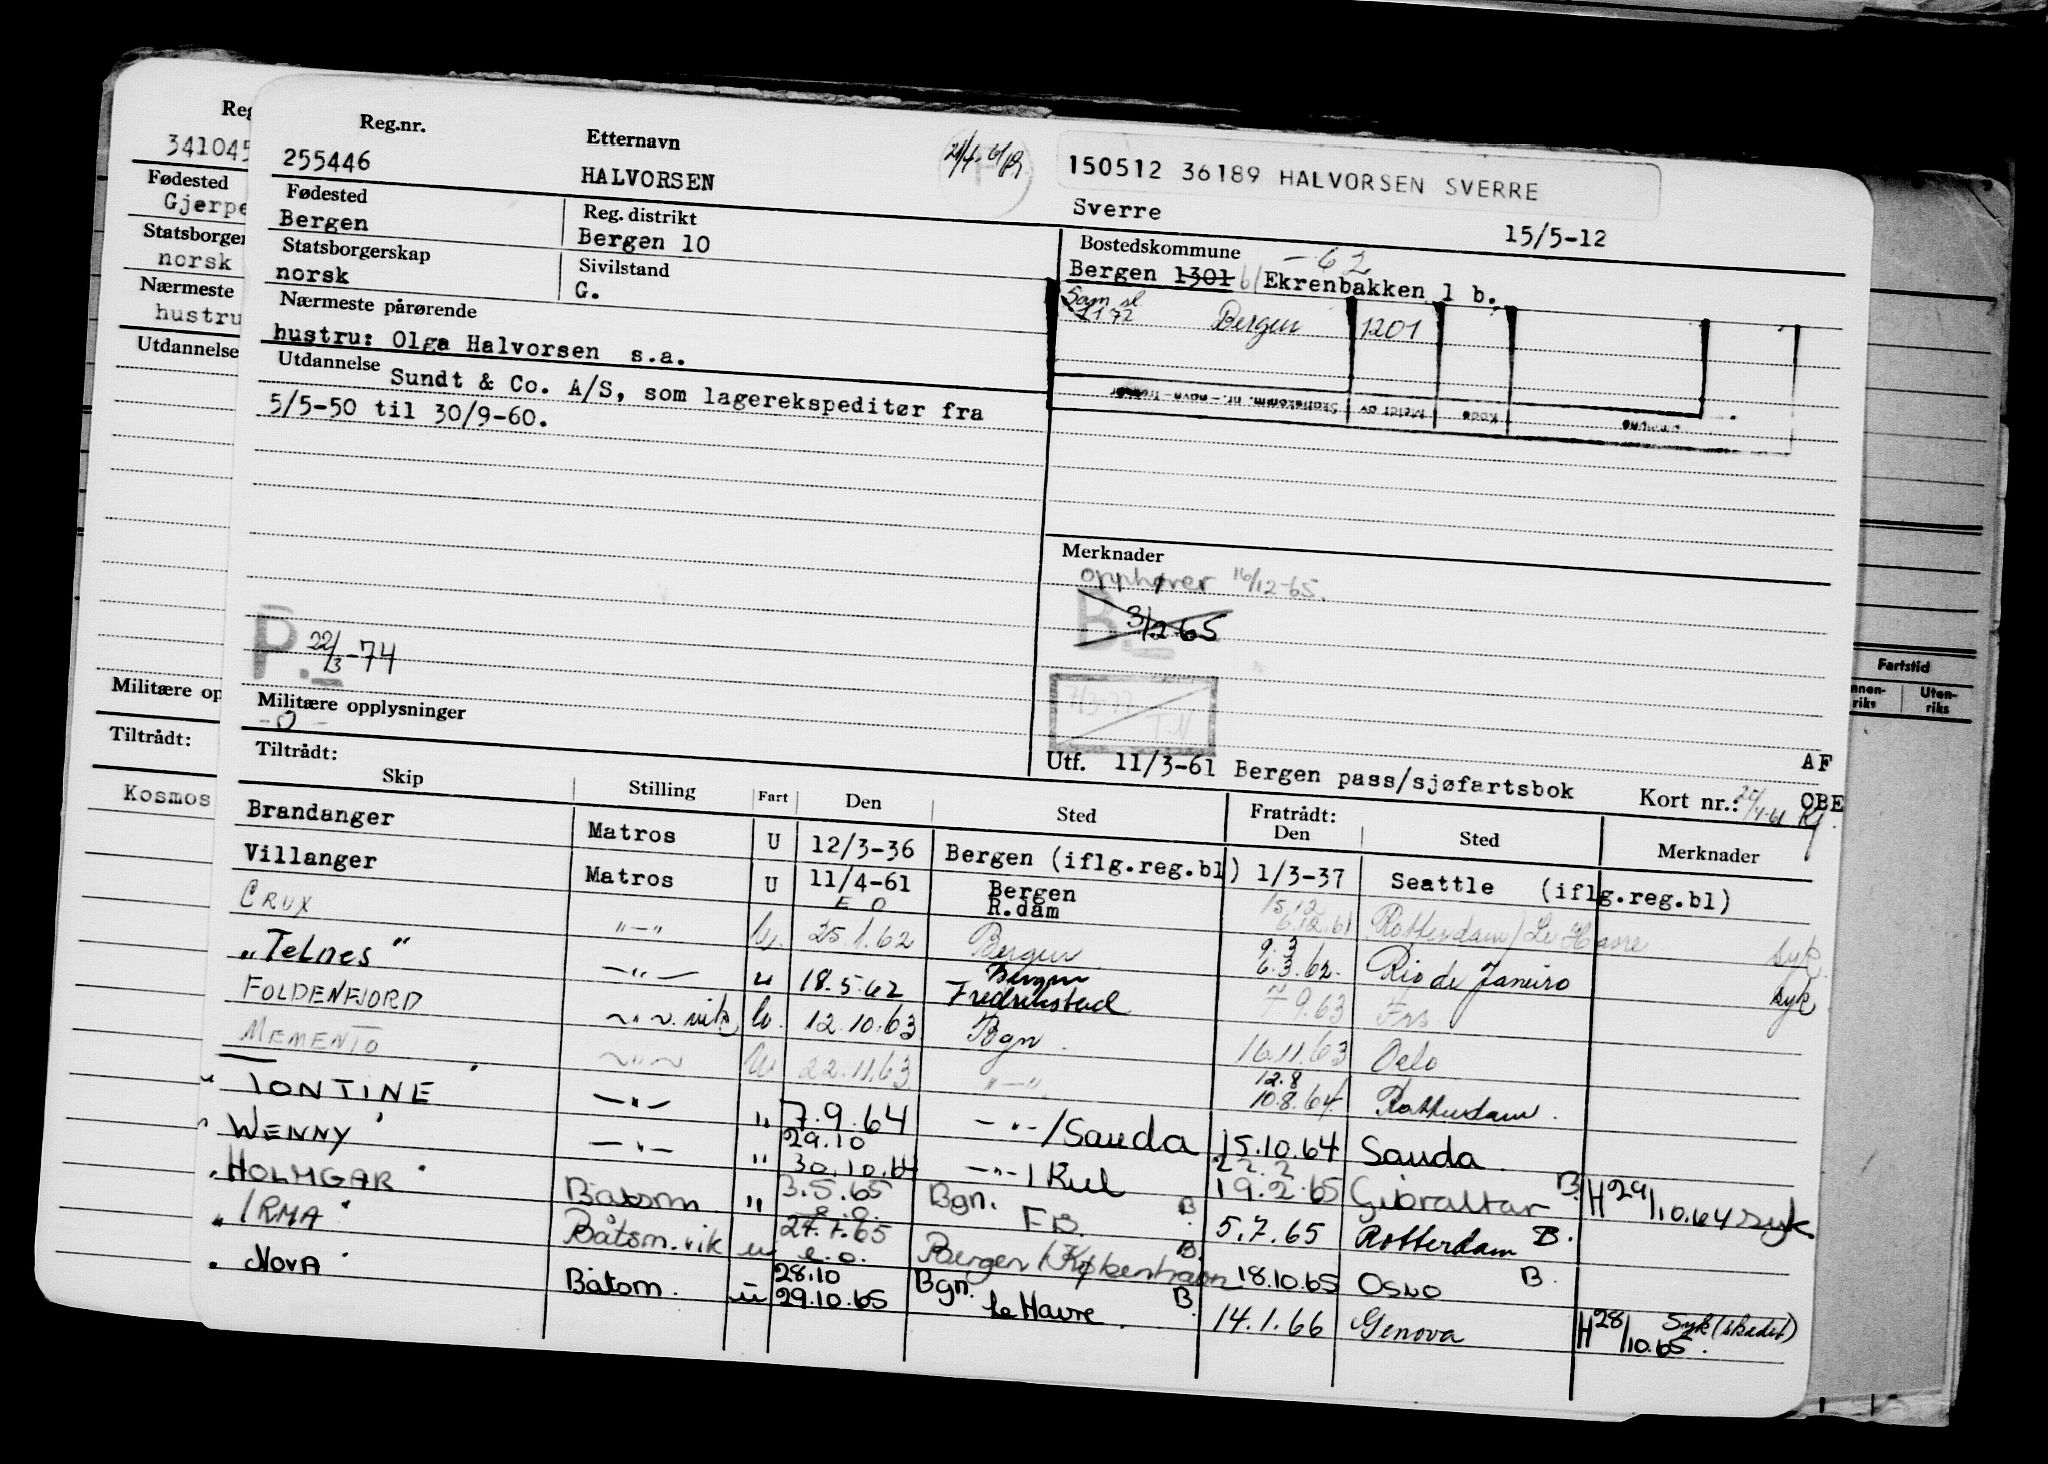 Reg.nr. Etternavn 21/4-61
341045 255446 HALVORSEN 150512 36189 HALVORSEN SVERRE
Sverre 15/5-12
Fødested Fødested Reg. distrikt Bostedskommune -62
Gjerpe Bergen Bergen 10 Bergen 1301 Ekrenbakken 1 b.
Statsborger Statsborgerskap Sivilstand
norsk norsk G. Bergen 1201
Nærmeste Nærmeste pårørende
hustru hustru: Olga Halvorsen s.a.
Utdannelse Utdannelse Sundt & Co. A/S, som lagerekspeditør fra
5/5-50 til 30/9-60.
Skattekomm. nr. - navn - Meldt av Kode
Merknader
opphører 16/12-65.
B. 3/12 65
P. 22/3-74
7/3-77 T.N
Fartstid
Uten-
riks
Militære op Militære opplysninger
-0-
Utf. 11/3-61 Bergen pass/sjøfartsbok AF
Tiltrådt: Tiltrådt: Kort nr.: OBE
Skip Stilling Fart Den Sted Fratrådt: Den Sted Merknader
Kosmos
Brandanger Matros U 12/3-36 Bergen (iflg.reg.bl) 1/3-37 Seattle (iflg.reg.bl)
Villanger Matros U 11/4-61 E O Bergen R.dam 15.12 6.12.61 Rotterdam/Le Havre syk.
CRUX "-" U. 25.1.62 Bergen 9.3 6.3.62. Rio de Janeiro syk
"Telnes" -"- u 18.5.62 Bergen Fredrikstad 7.9.63 Frs
FOLDENFJORD -"- vik. U. 12.10.63 Bgn. 16.11.63 Oslo
MEMENTO -"- U 22.11.63 "-" 12.8 10.8.64 Rotterdam.
"TONTINE" -"- " 7.9.64 -"-/Sauda 15.10.64 Sauda
"WENNY" -"- " 29.10 30.10.64 -"-/Kiel 22.2 19.2.65 Gibraltar B. H 29/10.64 syk.
"HOLMGAR" Båtsm " 3.5.65 e.o. Bgn. FB. B. 5.7.65 Rotterdam B.
"IRMA" Båtsm. vik u 27.7.65 e.o. Bergen/København B. 18.10.65 OSLO B.
"NOVA" Båtsm. u 28.10 29.10.65 Bgn. Le Havre. B. 14.1.66 Genova H 28/10.65. Syk (skadet)